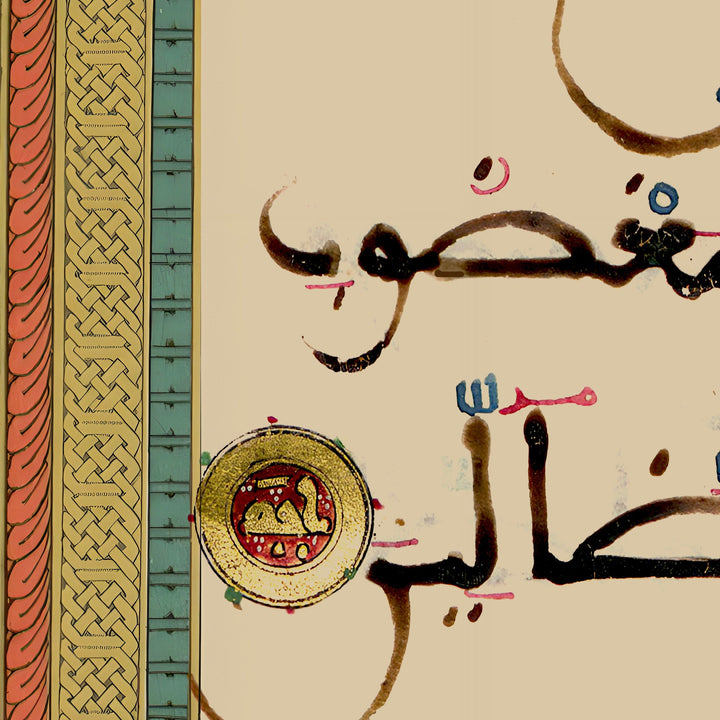 مَغْضُوبِ
ضَآلِّينَ